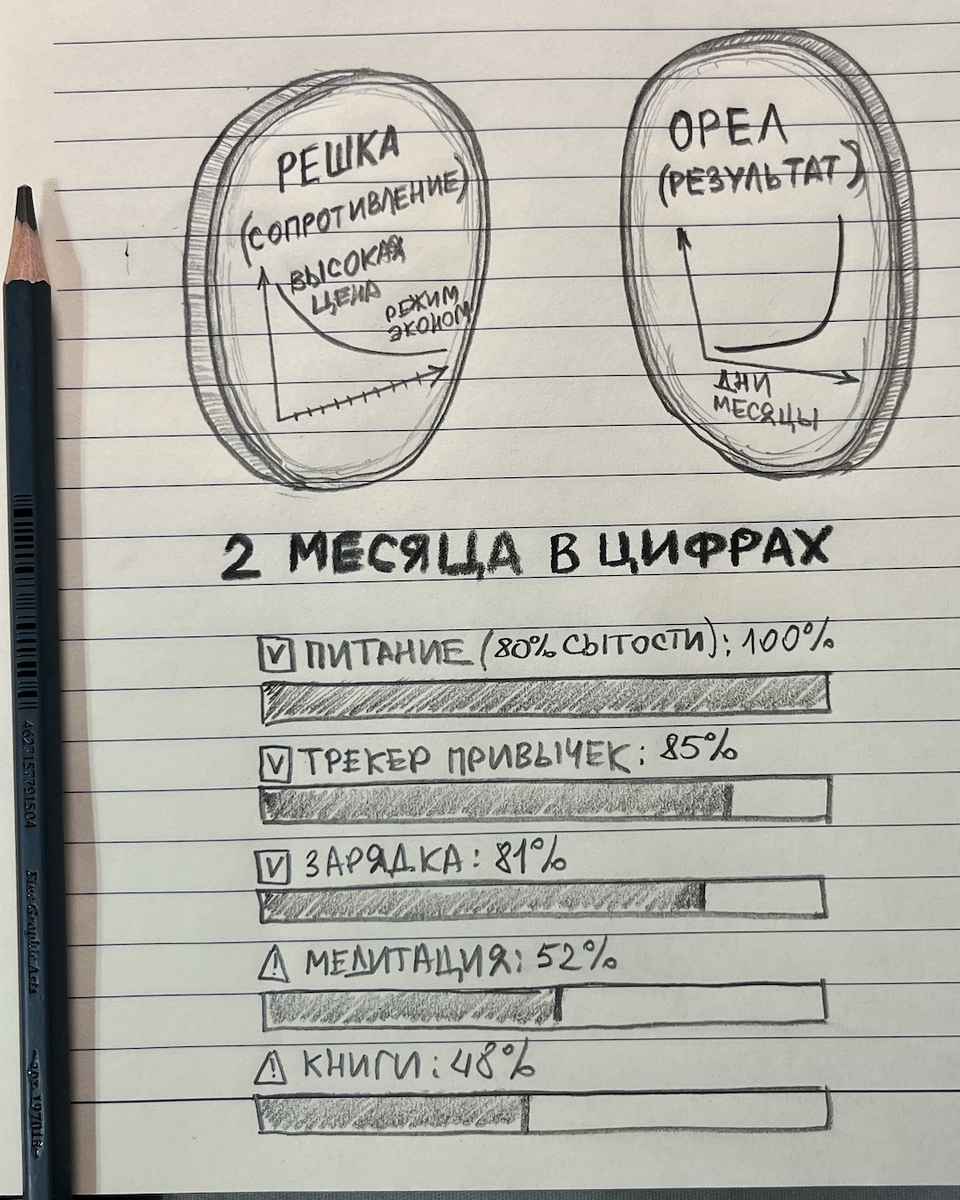 РЕШКА
(СОПРОТИВЛЕНИЕ)
ВЫСОКАЯ
ЦЕНА
РЕЖИМ
ЭКОНОМ
ОРЕЛ
(РЕЗУЛЬТАТ)
ДНИ
МЕСЯЦЫ
2 МЕСЯЦА В ЦИФРАХ
V ПИТАНИЕ (80% СЫТОСТИ): 100%
V ТРЕКЕР ПРИВЫЧЕК: 85%
V ЗАРЯДКА: 81%
⚠ МЕДИТАЦИЯ: 52%
⚠ КНИГИ: 48%